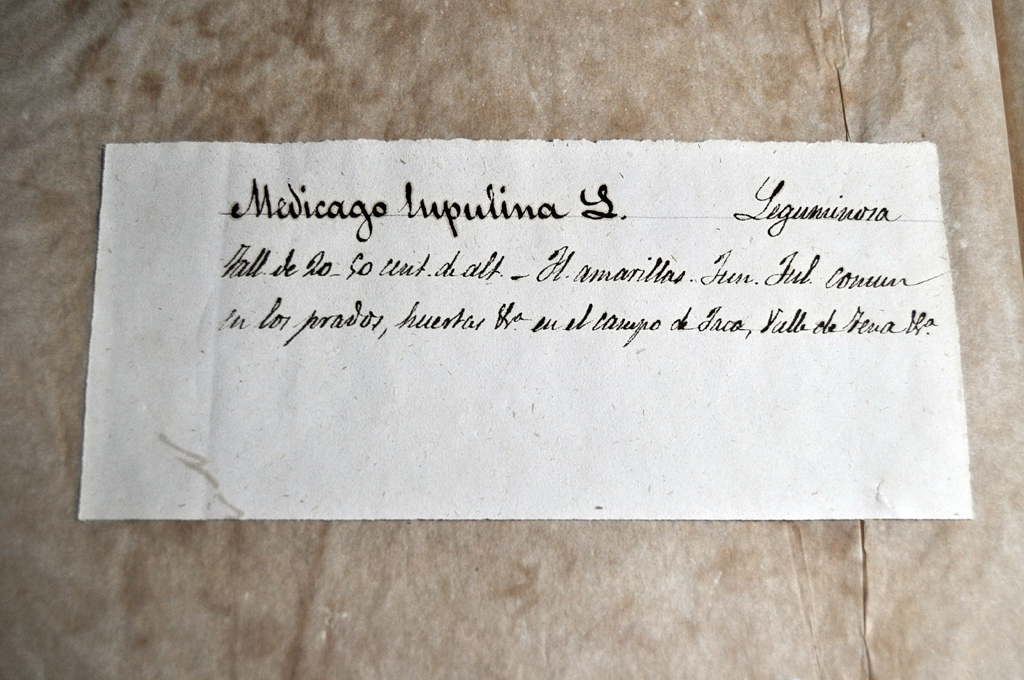 Medicago lupulina L. Leguminosa
Tall. de 20-50 cent. de alt. - Fl. amarillas. Jun. Jul. comun
en los prados, huertas &ª en el campo de Jaca, Valle de Tena &ª